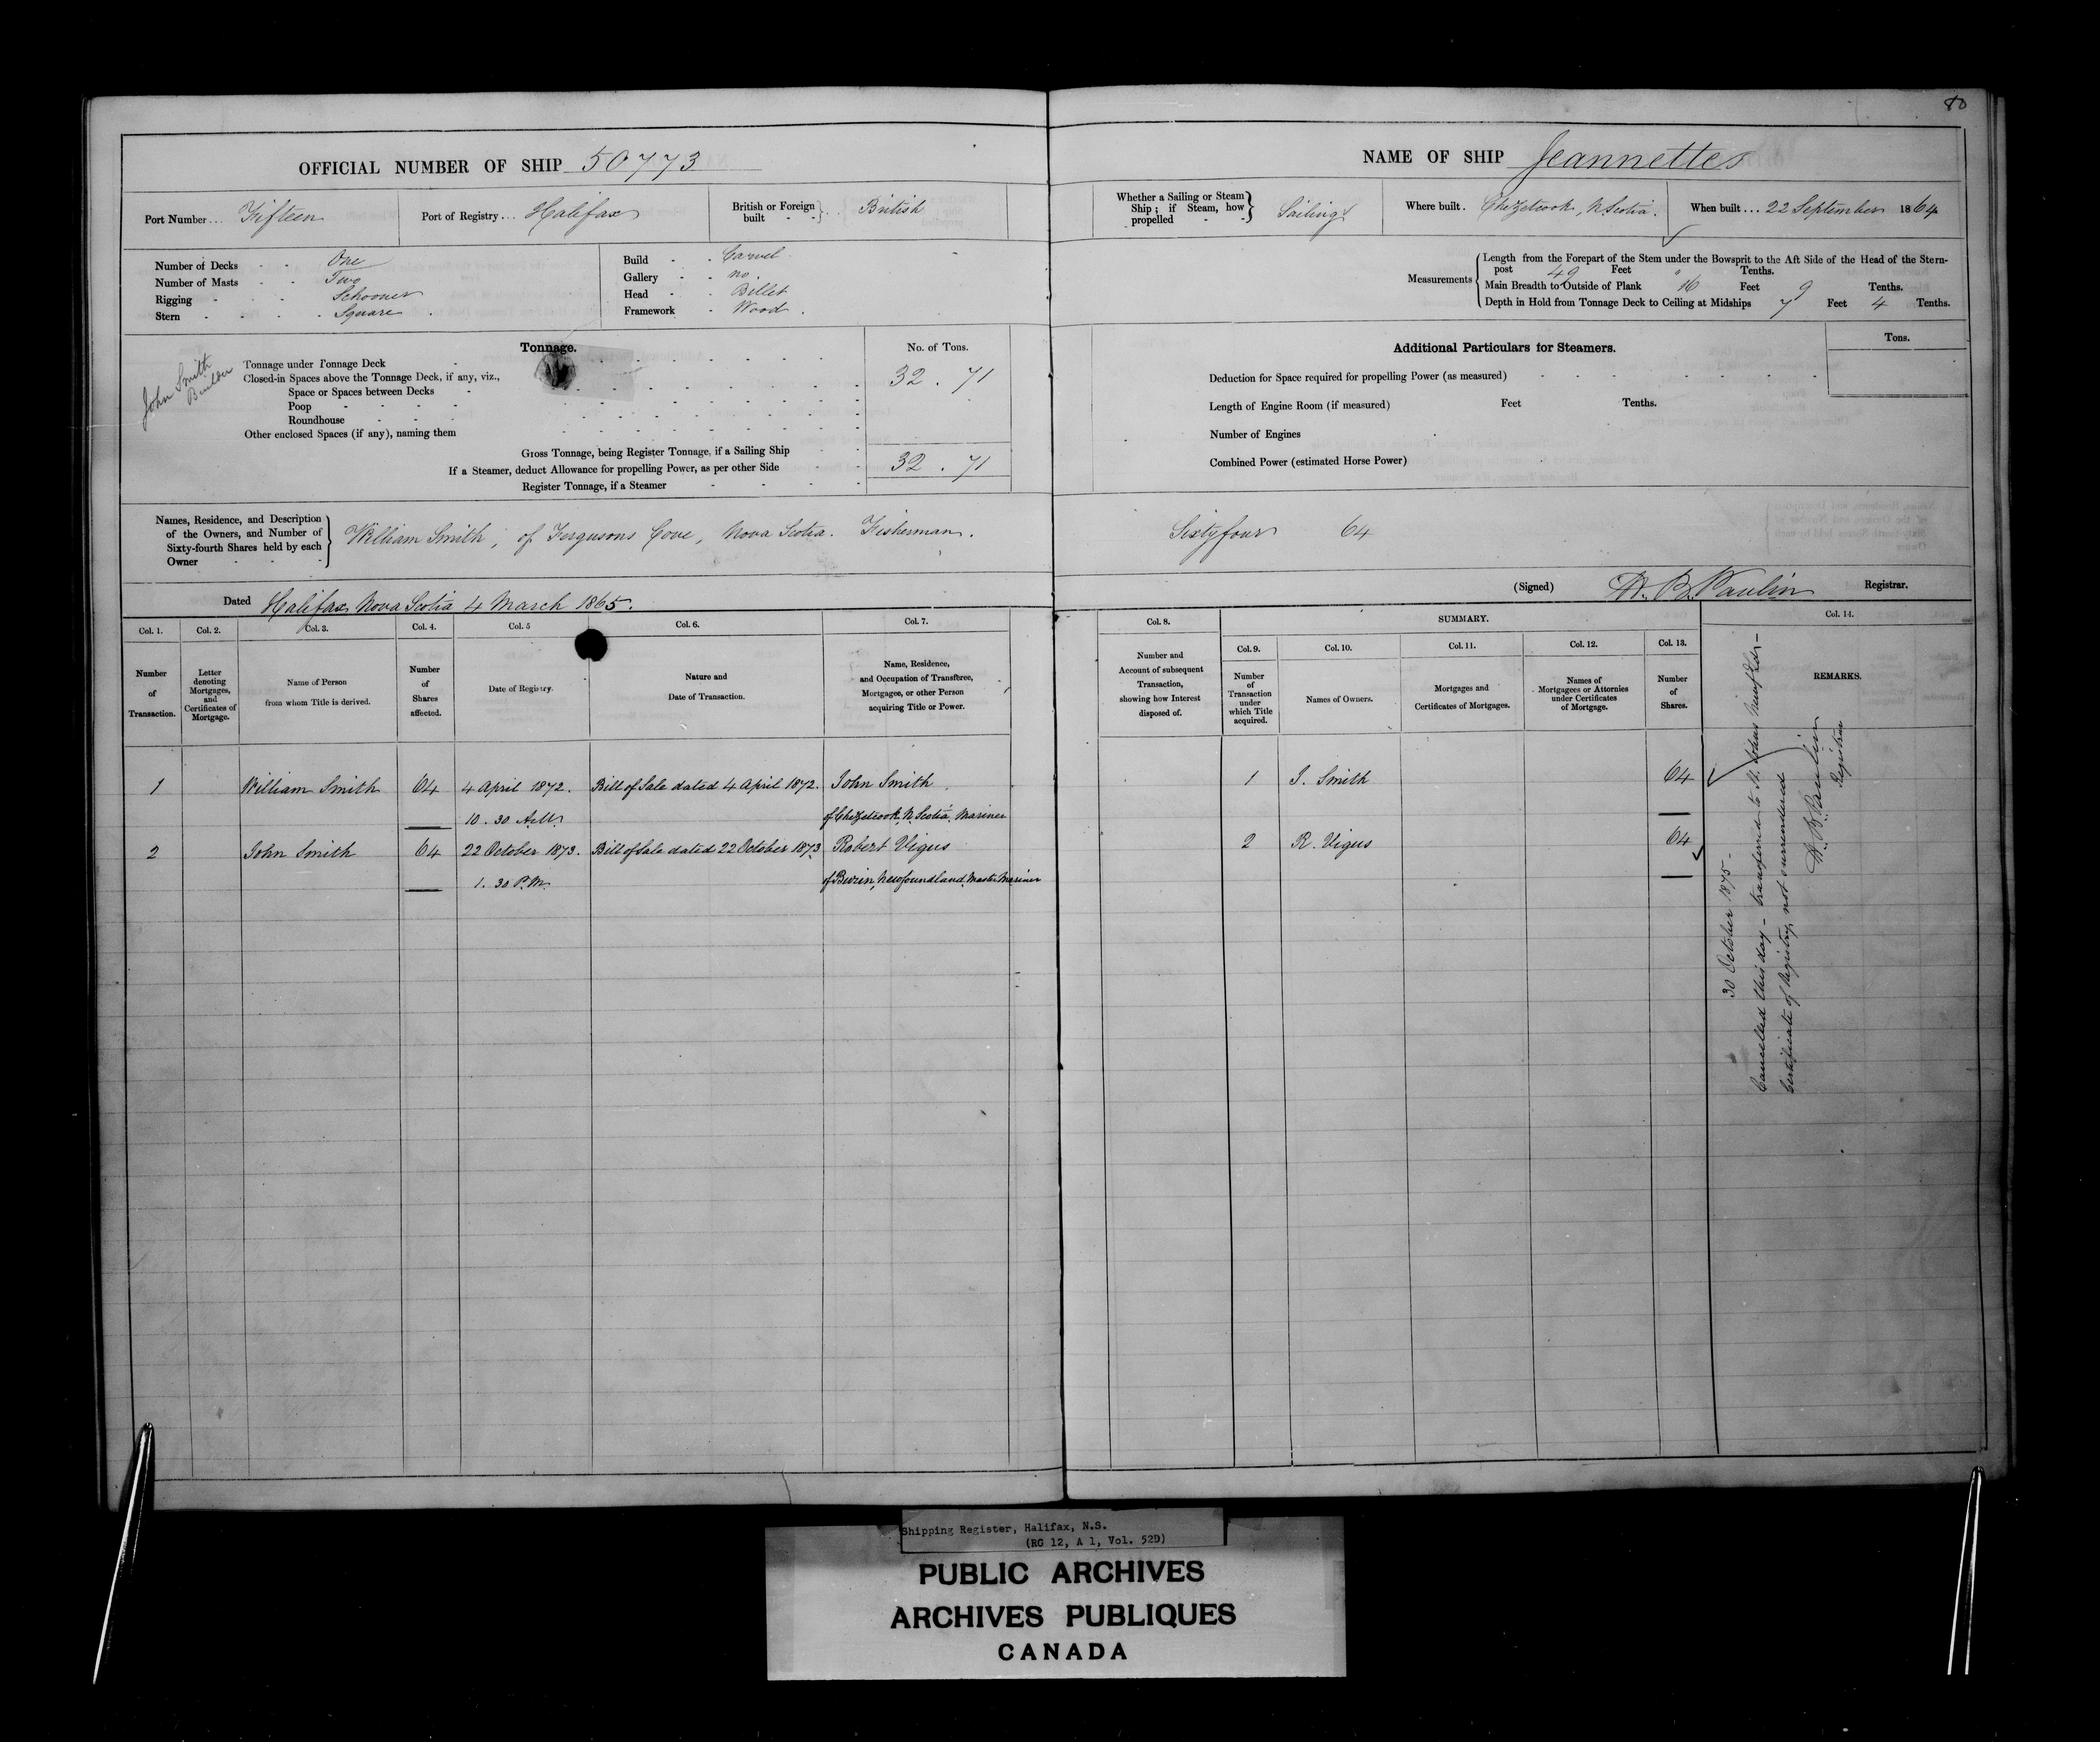 80
OFFICIAL NUMBER OF SHIP 50773
Port Number... Fifteen
Port of Registry... Halifax
British or Foreign built - - } British
Number of Decks - - One
Number of Masts - - Two
Rigging - - Schooner
Stern - - Square
Build - - Carvel
Gallery - - no.
Head - - Billet
Framework - Wood.
John Smith
Builder
Tonnage.
No. of Tons.
Tonnage under Tonnage Deck
Closed-in Spaces above the Tonnage Deck, if any, viz.,
32 . 71
Space or Spaces between Decks
Poop
Roundhouse
Other enclosed Spaces (if any), naming them
Gross Tonnage, being Register Tonnage, if a Sailing Ship
32 . 71
If a Steamer, deduct Allowance for propelling Power, as per other Side
Register Tonnage, if a Steamer
Names, Residence, and Description
of the Owners, and Number of
Sixty-fourth Shares held by each
Owner
William Smith, of Fergusons Cove, Nova Scotia. Fisherman.
Dated Halifax, Nova Scotia 4 March 1865.
Col. 1. Col. 2. Col. 3. Col. 4. Col. 5 Col. 6. Col. 7.
Number of Transaction.
Letter denoting Mortgages, and Certificates of Mortgage.
Name of Person from whom Title is derived.
Number of Shares affected.
Date of Registry.
Nature and Date of Transaction.
Name, Residence, and Occupation of Transferee, Mortgagee, or other Person acquiring Title or Power.
1 William Smith 64 4 April 1872. Bill of Sale dated 4 April 1872. John Smith
10.30 A.M. of Chezetcook, N. Scotia. Mariner
2 John Smith 64 22 October 1873. Bill of Sale dated 22 October 1873 Robert Vigus
1.30 P.M. of Burin, Newfoundland. Master Mariner
NAME OF SHIP Jeannette
Whether a Sailing or Steam Ship; if Steam, how propelled - - } Sailing
Where built. Chezetcook, N. Scotia.
When built... 22 September 1864
Measurements
Length from the Forepart of the Stem under the Bowsprit to the Aft Side of the Head of the Stern-
post 49 Feet " Tenths.
Main Breadth to Outside of Plank 16 Feet 9 Tenths.
Depth in Hold from Tonnage Deck to Ceiling at Midships 7 Feet 4 Tenths.
Additional Particulars for Steamers.
Tons.
Deduction for Space required for propelling Power (as measured)
Length of Engine Room (if measured) Feet Tenths.
Number of Engines
Combined Power (estimated Horse Power)
Sixty four 64
(Signed) H. B. Paulin Registrar.
Col. 8. SUMMARY. Col. 14.
Col. 9. Col. 10. Col. 11. Col. 12. Col. 13.
Number and Account of subsequent Transaction, showing how Interest disposed of.
Number of Transaction under which Title acquired.
Names of Owners.
Mortgages and Certificates of Mortgages.
Names of Mortgagees or Attornies under Certificates of Mortgage.
Number of Shares.
REMARKS.
1 J. Smith 64
2 R. Vigus 64
30 October 1875 -
Cancelled this day - transferred to St. Johns Newfld -
Certificate of Registry not surrendered
H. B. Paulin
Registrar
Shipping Register, Halifax, N.S.
(RG 12, A 1, Vol. 52D)
PUBLIC ARCHIVES
ARCHIVES PUBLIQUES
CANADA